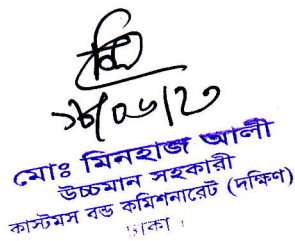 ১৮/০৬/২৩
মোঃ মিনহাজ আলী
উচ্চমান সহকারী
কাস্টমস বন্ড কমিশনারেট (দক্ষিণ)
ঢাকা।